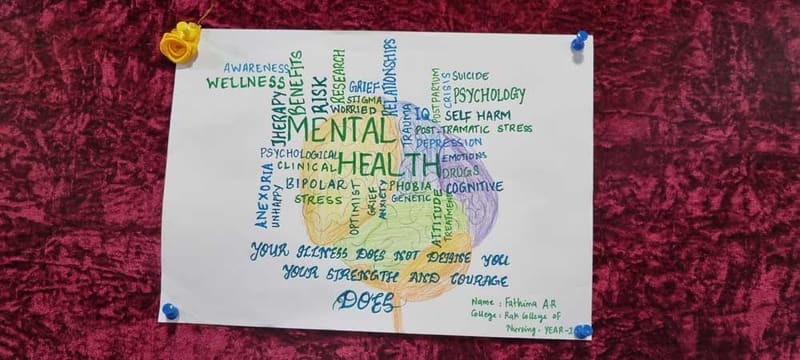 AWARENESS
WELLNESS
THERAPY
BENEFITS
RISK
RESEARCH
GRIEF
STIGMA
WORRIED
RELATIONSHIPS
MENTAL
HEALTH
TRAUMA
IQ
POSTPARTUM
CRISIS
SUICIDE
PSYCHOLOGY
SELF HARM
POST-TRAMATIC STRESS
DEPRESSION
EMOTIONS
DRUGS
COGNITIVE
PSYCHOLOGICAL
CLINICAL
BIPOLAR
STRESS
ANEXORIA
UNHAPPY
OPTIMIST
GRIEF
ANXIETY
PHOBIA
GENETIC
ATTITUDE
TREATMENT
YOUR ILLNESS DOES NOT DEFINE YOU
YOUR STRENGTH AND COURAGE
DOES
Name : Fathima A.R
College : Rak College of
Nursing - YEAR-I